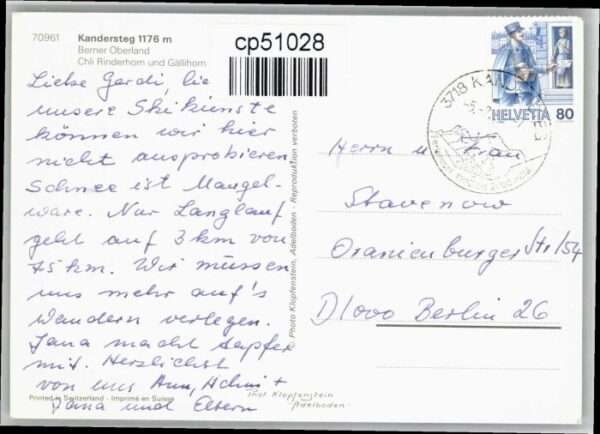 70961 Kandersteg 1176 m
Berner Oberland
Chli Rinderhorn und Gällihorn
cp51028
Liebe Gerdi,
unsere Skikünste
können wir hier
nicht ausprobieren
Schnee ist Mangel-
ware. Nur Langlauf
geht auf 3 km von
75 km. Wir müssen
uns mehr auf's
Wandern verlegen.
Jana macht tapfer
mit. Herzlichst
von uns Ann, Achim +
Jana und Eltern
Printed in Switzerland - Imprimé en Suisse
Photo Klopfenstein, Adelboden - Reproduktion verboten
Klopfenstein
Adelboden
HELVETIA 80
3718 KANDERSTEG
Herrn u Frau
Stavenow
Oranienburger Str 154
D1000 Berlin 26